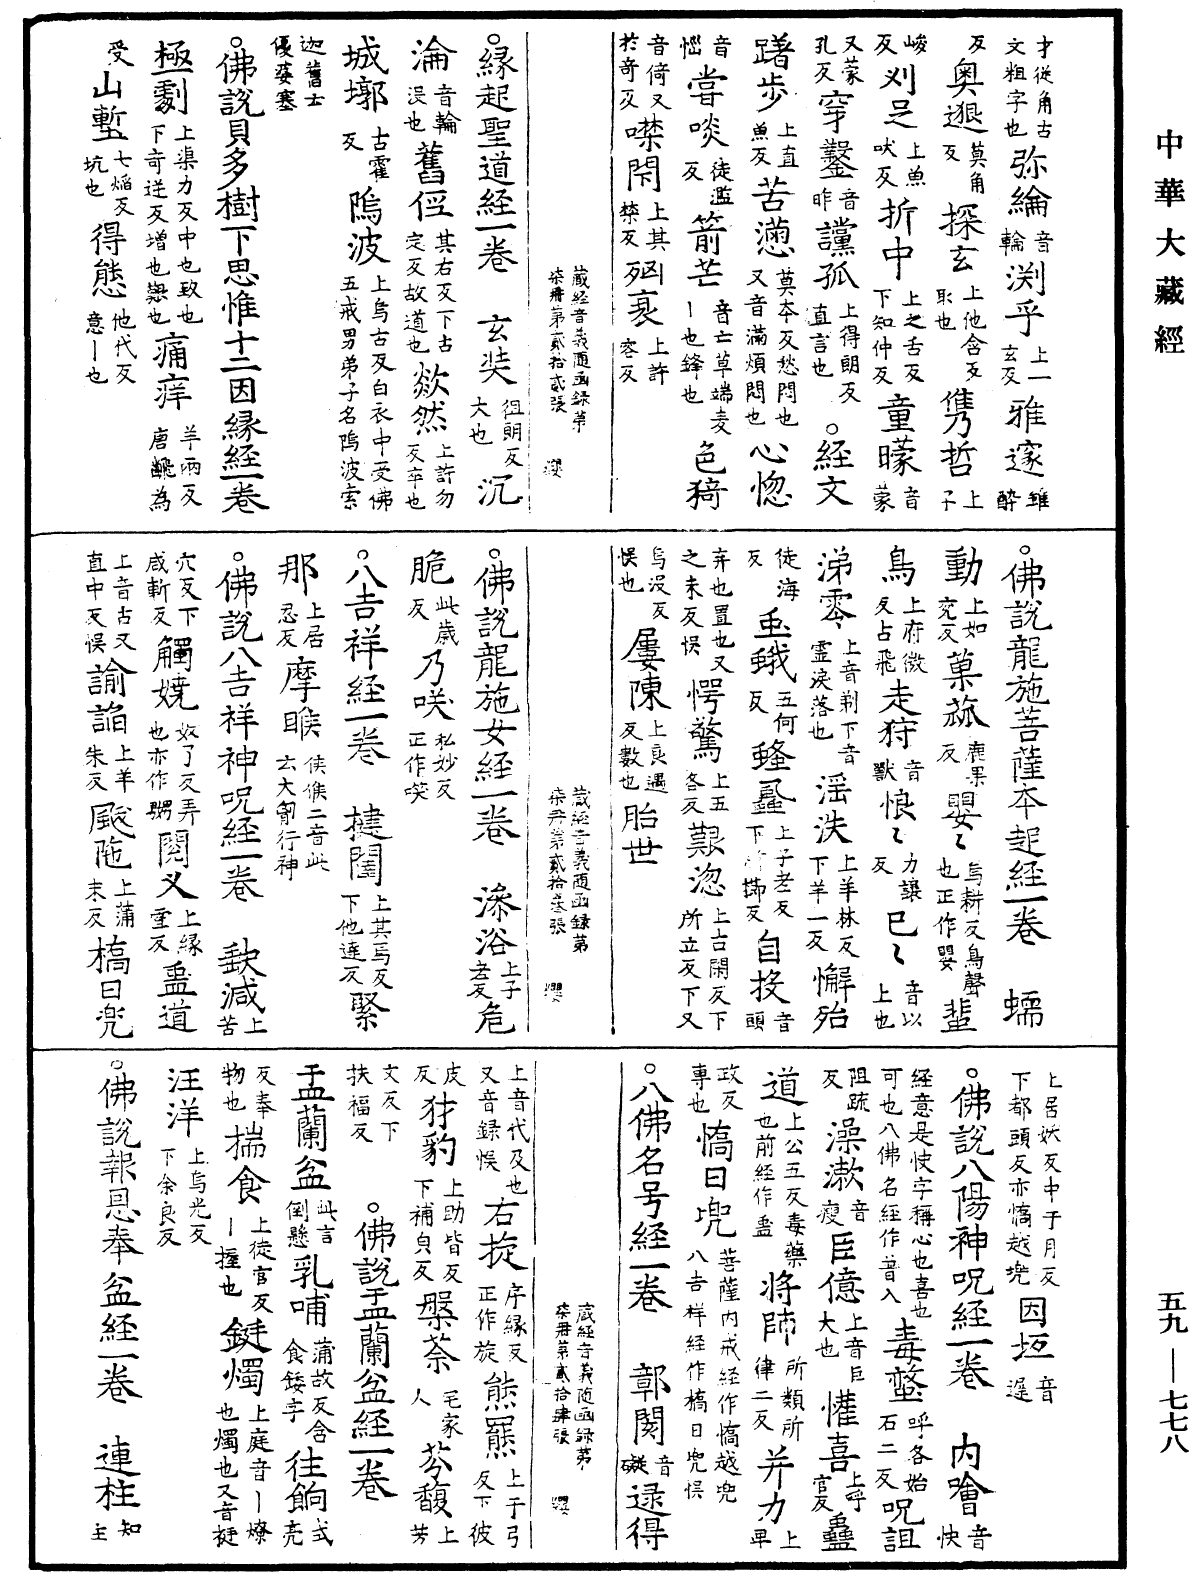 中華大藏經
才從角古文粗字也 弥綸 音輪 渊乎 上一玄反 雅邃 雖醉
反 奥邈 莫角反 探玄 上他含反取也 儁哲 上子
峻反 刈足 上魚吠反 折中 上之舌反下知仲反 童矇 音蒙
又蒙孔反 穿鑿 音昨 讜孤 上得朗反直言也 。經文
躇步 上直魚反 苦懣 莫本反愁悶也又音滿煩悶也 心惚
音惱 甞啖 徒濫反 箭芒 音亡草端麦丨也鋒也 色猗
音倚又於奇反 噤閇 上其禁反 殈衰 上許容反
藏經音義随函録第 柒冊第貳拾貳張 瓔
。縁起聖道經一卷 玄奘 徂朗反大也 沉
淪 音輪没也 舊侄 其右反下古定反故道也 欻然 上許勿反卒也
城墎 古霍反 鄔波 上烏古反白衣中受佛五戒男弟子名鄔波索
迦舊士優婆塞
。佛說貝多樹下思惟十二因縁經一卷
極劇 上渠力反中也致也下奇逆反增也𭥍也 痛痒 羊兩反唐𮮐為
受 山塹 七焰反坑也 得態 他代反意丨也
。佛說龍施菩薩本起經一卷 蠕
動 上如兖反 菓蓏 鹿果反 嬰〻 烏耕反鳥聲也正作嚶 蜚
鳥 上府微反占飛 走狩 音獸 悢〻 力讓反 已〻 音以上也
涕零 上音剃下音靈淚落也 淫泆 上羊林反下羊一反 懈殆
徒海反 䖝蛾 五何反 蚤虱 上子老反下所擳反 自投 音頭
弃也置也又之未反悮 愕驚 上五各反 艱澁 上古閑反下所立反下又
烏没反悮也 屢陳 上良遇反數也 胎世
藏經音義随函録第 柒冊第貳拾叁張 瓔
。佛說龍施女經一卷 澡浴 上子老反 危
脆 此歳反 乃咲 私妙反正作笑
。八吉祥經一卷 揵闥 上其焉反下他達反 緊
那 上居忍反 摩睺 侯候二音此云大䏶行神
。佛說八吉祥神呪經一卷 𨷂減 上苦
穴反下咸斬反 觸嬈 奴了反弄也亦作嬲 閱义 上縁雪反 蠱道
上音古又直中反悮 諭謟 上羊朱反 颰陁 上蒲末反 槗日兠
上居妖反中于月反下都頭反亦憍越兠 因坻 音遲
。佛說八陽神呪經一卷 内噲 音快
經意是快字稱心也喜也可也八佛名經作普入 毒螫 呼各始石二反 呪詛
阻踈反 澡漱 音瘦 巨億 上音巨大也 懽喜 上呼官反 蠱
道 上公五反毒藥也前經作蛊 將帥 所類所律二反 并力 上卑
政反專也 憍日兠 菩薩内戒經作憍越兠八吉祥經作槗日兠悮
。八佛名号經一卷 鄣閡 音礙 逯得
上音代及也又音録悮 右㨄 序縁反正作旋 熊羆 上于弓反下彼
皮反 犲豹 上助皆反下補皃反 槃荼 宅家人 芬馥 上芳
文反下扶福反 。佛說盂蘭盆經一卷
盂蘭盆 此言倒懸 乳哺 蒲故反含食餧字 往餉 式亮
反奉物也 揣食 上徒官反丨握也 鋌燭 上庭音丨燎也燭也又音挺
汪洋 上烏光反下余良反
。佛說報恩奉盆經一卷 連柱 知主
藏經音義随函録第 柒冊第貳拾肆張 瓔
五九——七七八